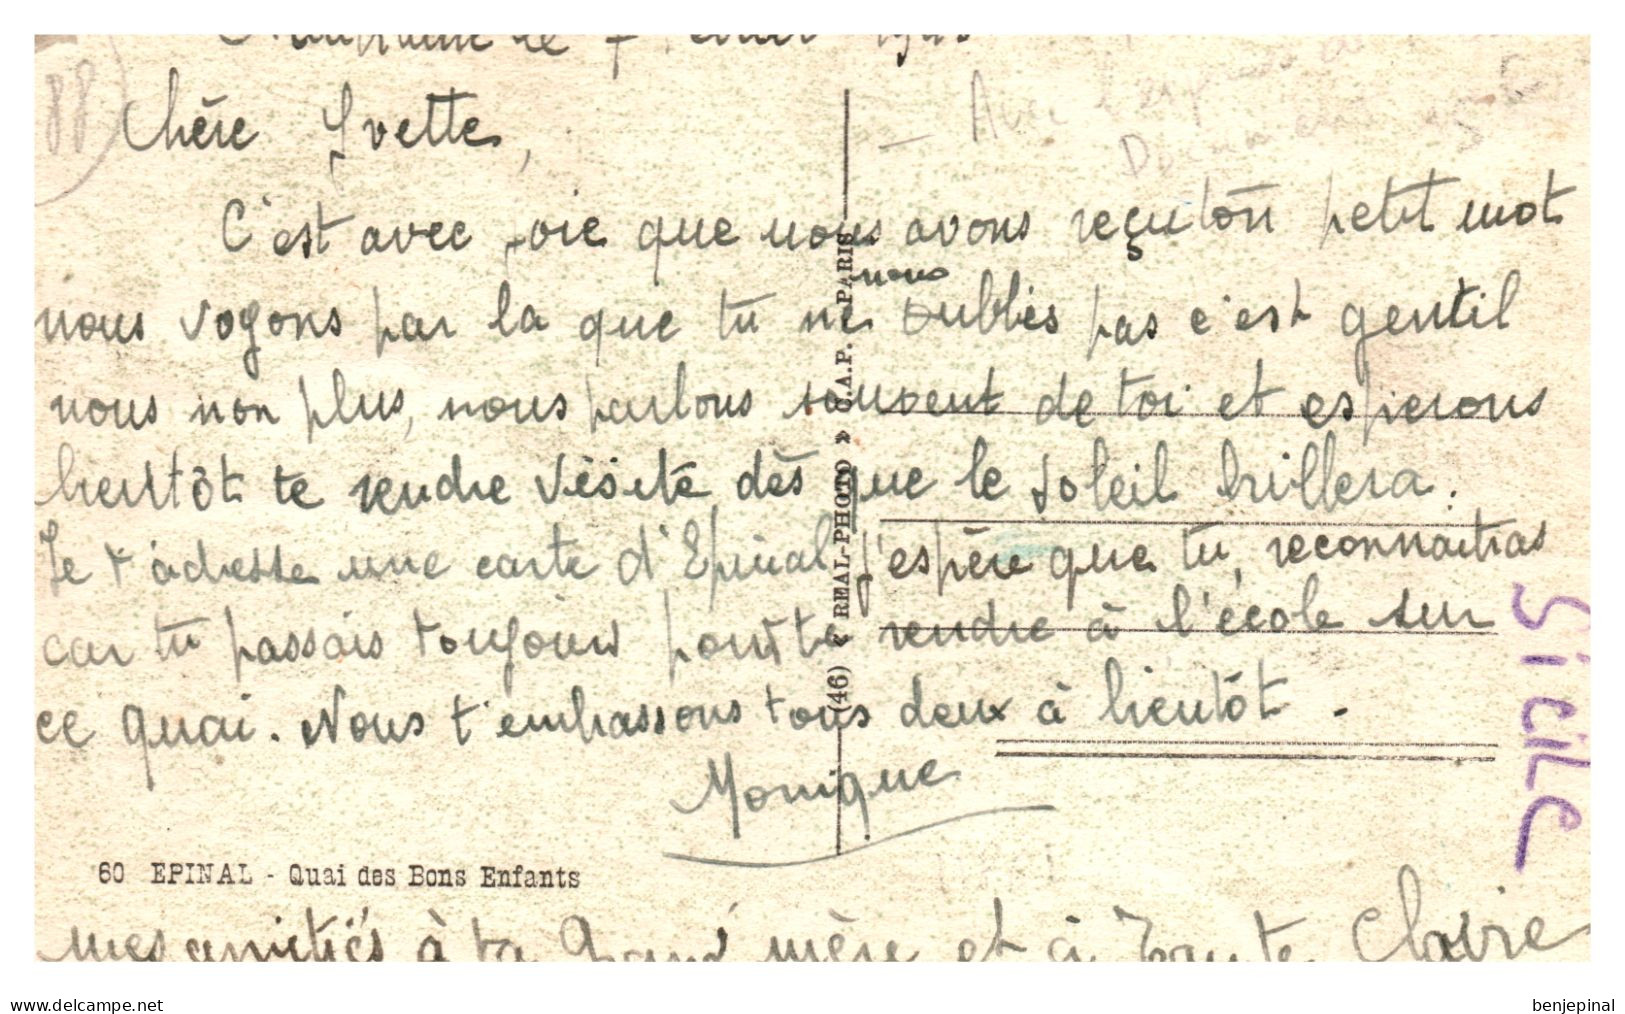 88
Chère Yvette,
C'est avec joie que nous avons reçu ton petit mot
nous
nous voyons par la que tu ne oublies pas c'est gentil
nous non plus, nous parlons souvent de toi et espérons
bientôt te rendre visite dès que le soleil brillera.
Je t'adresse une carte d'Epinal j'espère que tu reconnaitras
car tu passais toujours pour te rendre à l'école sur
ce quai. Nous t'embrassons tous deux à bientôt.
Monique
60 EPINAL - Quai des Bons Enfants
mes amitiés à ta Grand'mère et à Tante Claire
(46) « REAL-PHOTO » C.A.P. PARIS
Avec
Sicile
delcampe.net
benjepinal